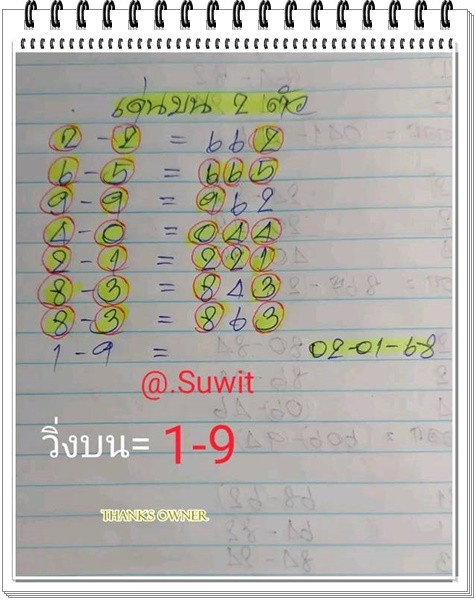 เด่นบน 2 ตัว
2 - 2 = 662
6 - 5 = 665
9 - 9 = 962
4 - 0 = 044
2 - 1 = 221
8 - 3 = 843
8 - 3 = 863
1 - 9 =
02-01-68
@.Suwit
วิ่งบน= 1-9
THANKS OWNER